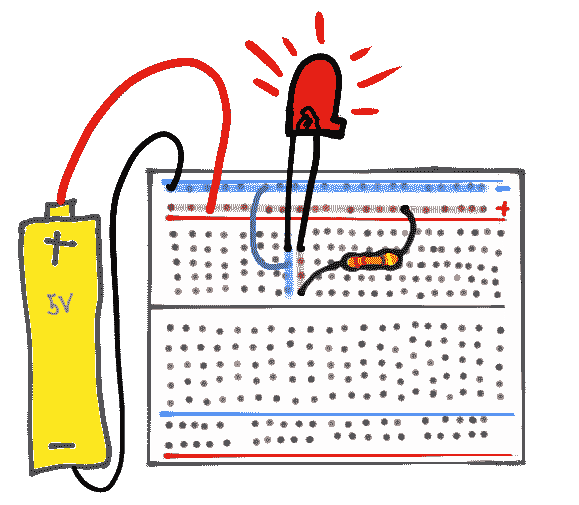 +
5V
−
−
+